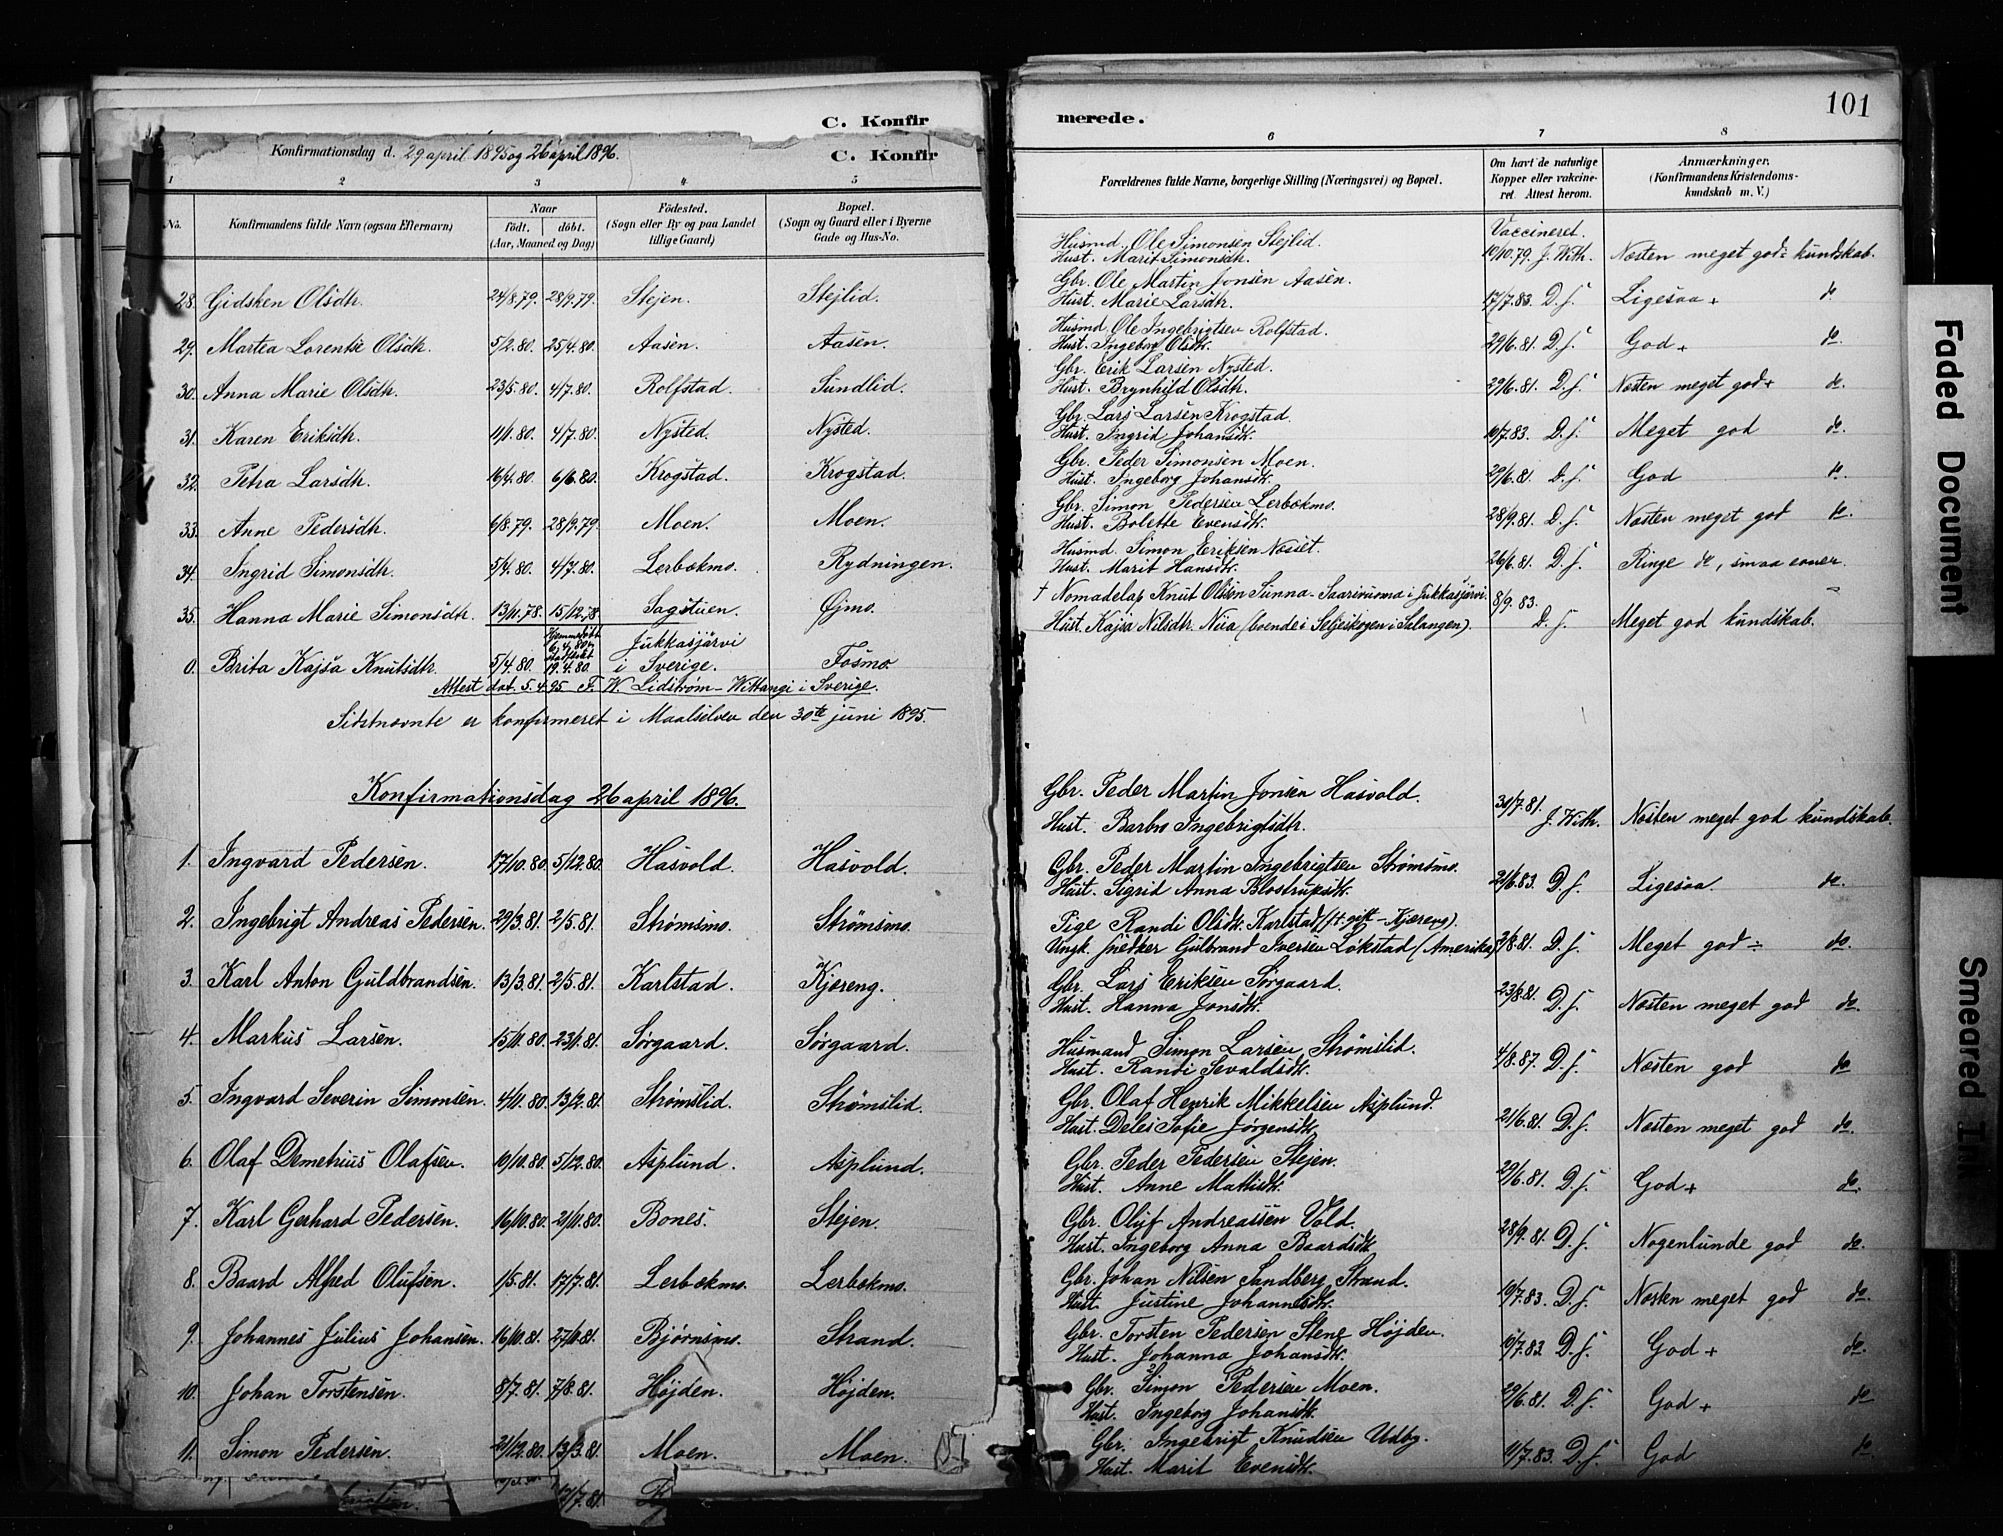 101
C. Konfir
merede.
Konfirmationsdag d. 29 april 1895 og 26 april 1896.
C. Konfir
1 2 3 4 5
6 7 8
No.
Konfirmandens fulde Navn (ogsaa Efternavn)
Naar
født. døbt.
(Aar, Maaned og Dag)
Fødested.
(Sogn eller By og paa Landet
tillige Gaard)
Bopæl.
(Sogn og Gaard eller i Byerne
Gade og Hus-No.
Forældrenes fulde Navne, borgerlige Stilling (Næringsvei) og Bopæl.
Om havt de naturlige
Kopper eller vakcine-
ret. Attest herom.
Anmærkninger.
(Konfirmandens Kristendoms-
kundskab m. V.)
28. Gidsken Olsdtr. 24/8.79. 28/9.79. Stejen. Stejlid.
29. Martea Lorentse Olsdtr. 5/2.80. 25/4.80. Aasen. Aasen.
30. Anna Marie Olsdtr. 23/5.80. 4/7.80. Rolfstad. Sundlid.
31. Karen Eriksdtr. 11/1.80. 4/7.80. Nysted. Nysted.
32. Petra Larsdtr. 16/4.80. 6/6.80. Krogstad. Krogstad.
33. Anne Pedersdtr. 6/8.79. 28/9.79. Moen. Moen.
34. Ingrid Simonsdtr. 5/4.80. 4/7.80. Lerbækmo. Rydningen.
35. Hanna Marie Simonsdtr. 13/11.78. 15/12.78 Sagstuen. Øjmo.
Hjemmedøbt
6/4 80
stadfæstet
19.4.80.
0. Brita Kajsa Knutsdtr. 5/4.80. Jukkasjärvi
i Sverige. Fosmo
Attest dat. 5.4.95 F. W. Lidstrøm - Wittangi i Sverige.
Sidstnævnte er konfirmeret i Maalselven den 30te juni 1895.
Konfirmationsdag 26 april 1896.
1. Ingvard Pedersen. 17/10.80. 5/12.80 Hasvold. Hasvold.
2. Ingebrigt Andreas Pedersen. 29/3.81. 2/5.81. Strømsmo. Strømsmo.
3. Karl Anton Guldbrandsen. 13/3.81. 2/5.81. Karlstad. Kjæreng.
4. Markus Larsen. 15/11.80. 23/1.81. Sørgaard. Sørgaard.
5. Ingvard Severin Simonsen. 4/11.80. 13/2.81. Strømslid. Strømslid.
6. Olaf Demetrius Olafsen. 10/10.80. 5/12.80. Asplund. Asplund.
7. Karl Gerhard Pedersen. 16/10.80. 21/11.80. Bones. Stejen.
8. Baard Alfred Olufsen. 1/5.81. 17/7.81. Lerbækmo. Lerbækmo.
9. Johannes Julius Johansen. 16/10.81. 27/10.81. Bjørnsmo. Strand.
10. Johan Torstensen. 8/7.81. 7/8.81. Højden. Højden.
11. Simon Pedersen. 21/12.80. 13/3.81. Moen. Moen.
17/7.81.
Vaccineret.
Husmd. Ole Simonsen Stejlid.
Hust. Marit Simonsdtr. 19/10.79. J. With. Næsten meget god kundskab.
Gbr. Ole Martin Jonsen Aasen.
Hust. Marie Larsdtr. 17/7.83. D. s. Ligesaa + do
Husmd. Ole Ingebrigtsen Rolfstad.
Hust. Ingeborg Olsdtr. 29/6.81. D. s. God + do.
Gbr. Erik Larsen Nysted.
Hust. Brynhild Olsdtr. 29/6.81. D. s. Næsten meget god + do.
Gbr. Lars Larsen Krogstad.
Hust. Ingrid Johansdtr. 10/7.83. D. s. Meget god do.
Gbr. Peder Simonsen Moen.
Hust. Ingeborg Johansdtr. 29/6.81. D. s. God do.
Gbr. Simon Pedersen Lerbækmo.
Hust. Bolette Evensdtr. 28/9.81. D. s. Næsten meget god do.
Husmd. Simon Eriksen Næset.
Hust. Marit Hansdtr. 26/6.81. D. s. Ringe do, smaa evner.
† Nomadelap Knut Olsson Sunna - Saarivuoma i Jukkasjärvi.
Hust. Kajsa Nilsdtr. Niia (boende i Seljeskogen i Salangen). 8/9.83. D. s. Meget god kundskab.
Gbr. Peder Martin Jonsen Hasvold.
Hust. Barbro Ingebrigtsdtr. 31/7.81. J. With. Næsten meget god kundskab.
Gbr. Peder Martin Ingebrigtsen Strømsmo.
Hust. Sigrid Anna Blostrupsdtr. 21/6.83. D. s. Ligesaa. do.
Pige Randi Olsdtr. Karlstad (ft. gift - Kjæreng).
Ungk. snedker Gulbrand Iversen Løkstad (Amerika) 2/8.81. D. s. Meget god ÷ do.
Gbr. Lars Eriksen Sørgaard.
Hust. Hanna Jonsdtr. 23/8.81. D. s. Næsten meget god do.
Husmand Simon Larsen Strømslid.
Hust. Randi Sevaldsdtr. 4/8.87. D. s. Næsten god do
Gbr. Olaf Henrik Mikkelsen Asplund.
Hust. Deles Sofie Jørgensdtr. 21/6.81. D. s. Næsten meget god do.
Gbr. Peder Pedersen Stejen.
Hust. Anne Mathisdtr. 29/6.81. D. s. God + do.
Gbr. Oluf Andreassen Vold.
Hust. Ingeborg Anna Baardsdtr. 28/9.81. D. s. Nogenlunde god do.
Gbr. Johan Nilsen Sandberg, Strand.
Hust. Justine Johannesdtr. 19/7.83. D. s. Næsten meget god do.
Gbr. Torsten Pedersen Steng Højden.
Hust. Johanna Johansdtr. 19/7.83. D. s. God + do.
Gbr. Simon Pedersen Moen.
Hust. Ingeborg Johansdtr. 29/6.81. D. s. God + do
Gbr. Ingebrigt Knudsen Udby.
Hust. Marit Evensdtr. 11/7.83. D. s. God do
Faded Document
Smeared Ink